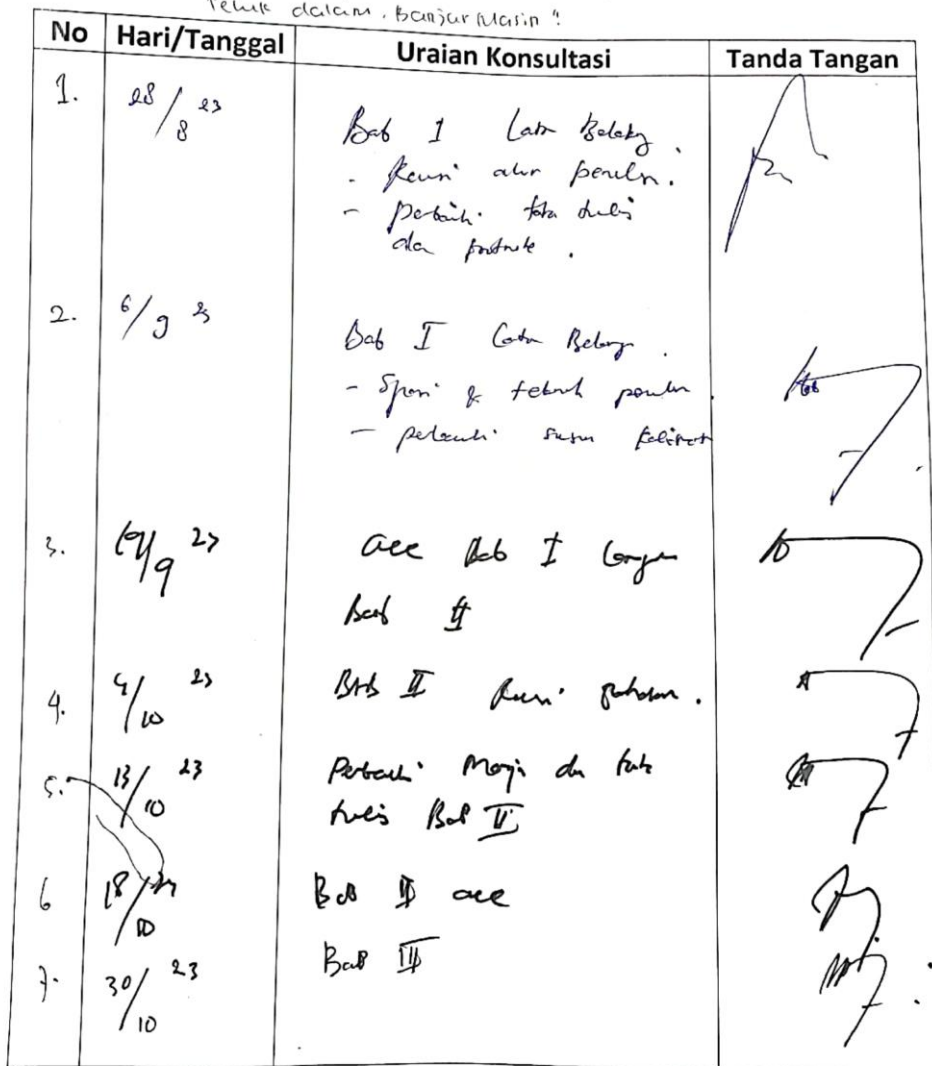 Teluk dalam, Banjarmasin".
No Hari/Tanggal Uraian Konsultasi Tanda Tangan
1. 28/8 23 Bab I Latar Belakang.
- Revisi alur penulisan.
- perbaiki tata tulis
dan footnote.
2. 6/9 23 Bab I Latar Belakang.
- Spasi & teknik penulisan
- perbaiki susunan kalimat
3. /9 23 acc Bab I
Bab II
4. 4/10 23 Bab II Revisi
5. 13/10 23 Perbaiki Margin dan tata
tulis Bab II
6 18/10 Bab II acc
7. 30/10 23 Bab III